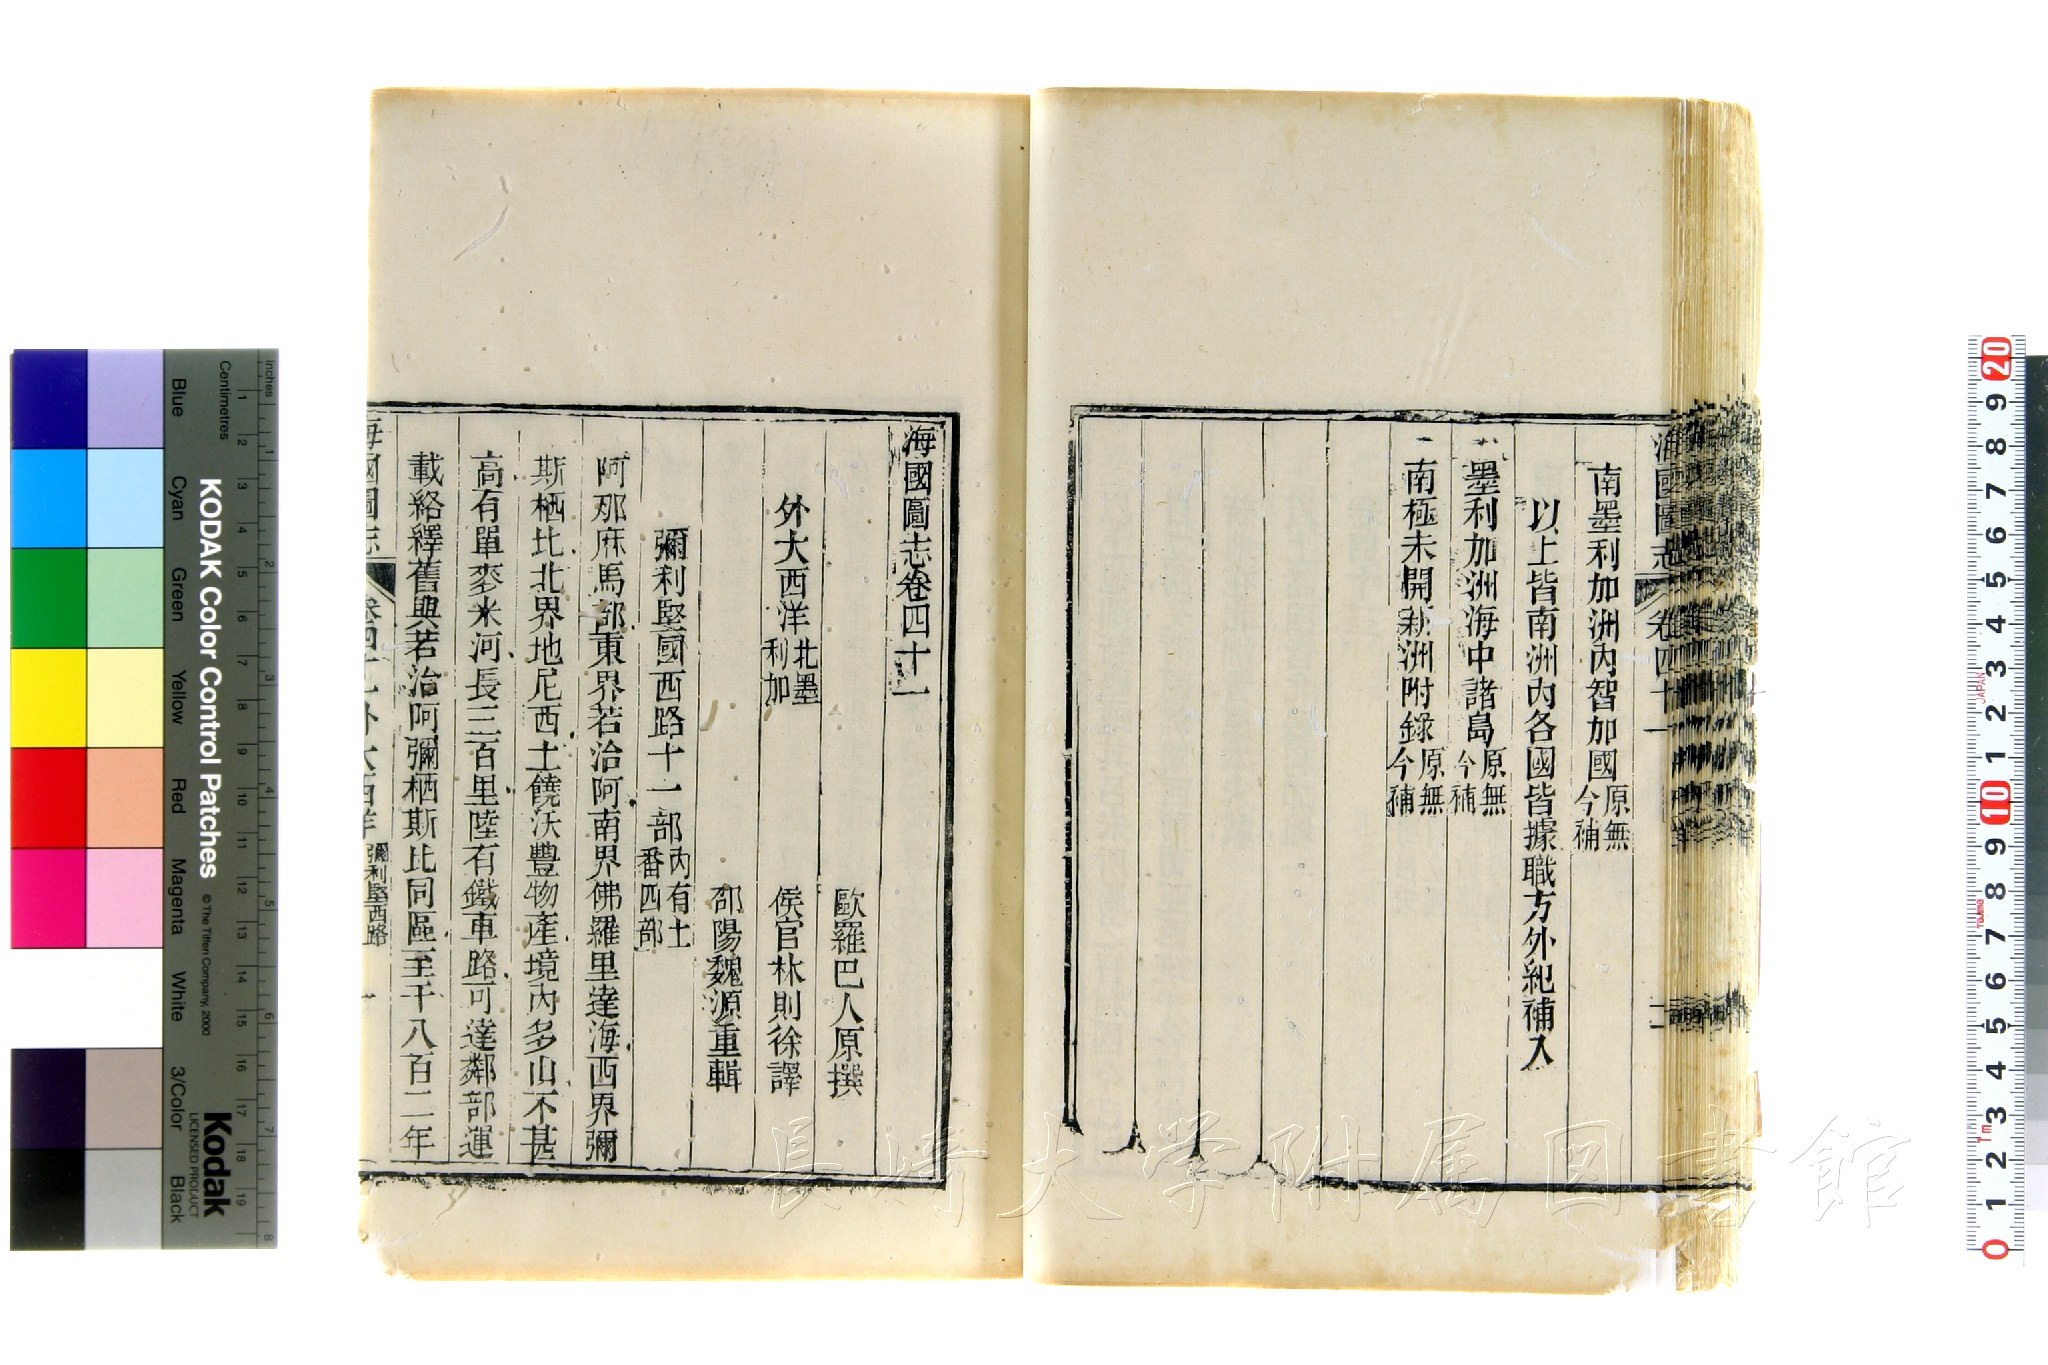 海國圖志 卷四十一
南墨利加洲內智加國原無今補
以上皆南洲內各國皆據職方外紀補入
墨利加洲海中諸島原無今補
南極未開新洲附錄原無今補
海國圖志卷四十一
歐羅巴人原撰
外大西洋北墨利加 侯官林則徐譯
邵陽魏源重輯
彌利堅國西路十一部內有土番四部
阿那麻馬部東界若治阿南界佛羅里達海西界彌
斯栖比北界地尼西土饒沃豐物產境內多山不甚
高有單麥米河長三百里陸有鐵車路可達鄰部運
載絡繹舊與若治阿彌栖斯比同區至千八百二年
海國圖志 卷四十一 外大西洋 彌利堅西路 一
長崎大学附属図書館
KODAK Color Control Patches
© The Tiffen Company, 2000
Kodak
LICENSED PRODUCT
Inches
Centimetres
Blue
Cyan
Green
Yellow
Red
Magenta
White
3/Color
Black
1 2 3 4 5 6 7 8 9 10 11 12 13 14 15 16 17 18 19
1 2 3 4 5 6 7 8
20 9 8 7 6 5 4 3 2 1 10 9 8 7 6 5 4 3 2 1 0
JAPAN